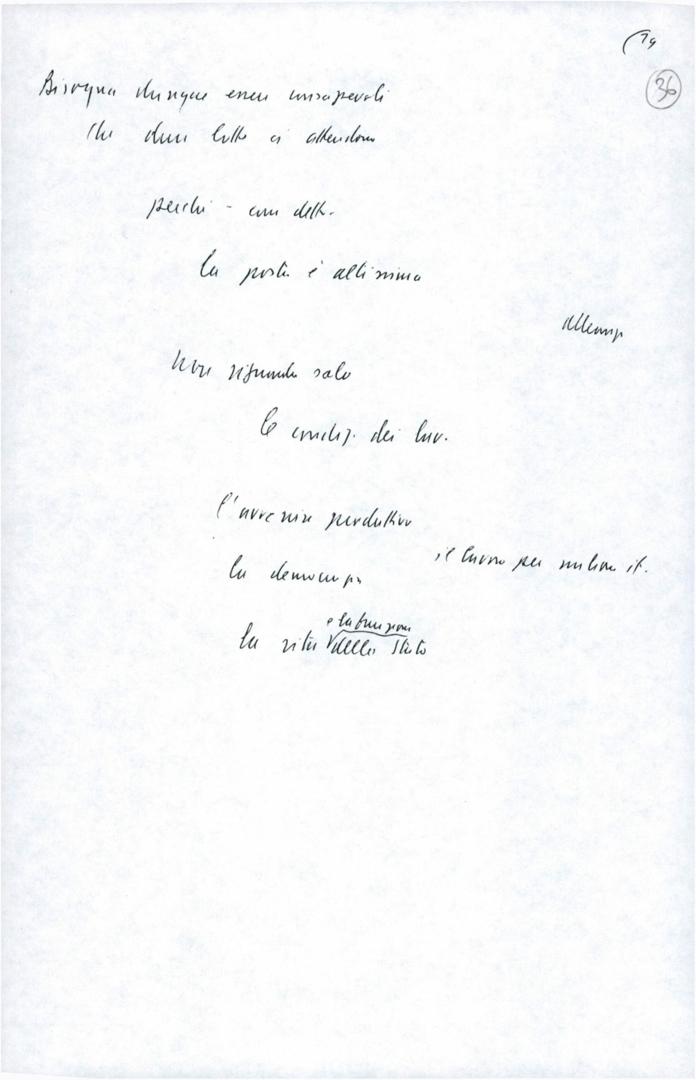 (14
36
Bisogna dunque essere consapevoli
che dure lotte ci attendono
perché - come detto -
la posta è altissima
non riguarda solo
le condiz. dei lav.
l'avvenire produttivo
il lavoro per milioni it.
la democrazia
e la funzione
la vita dello Stato